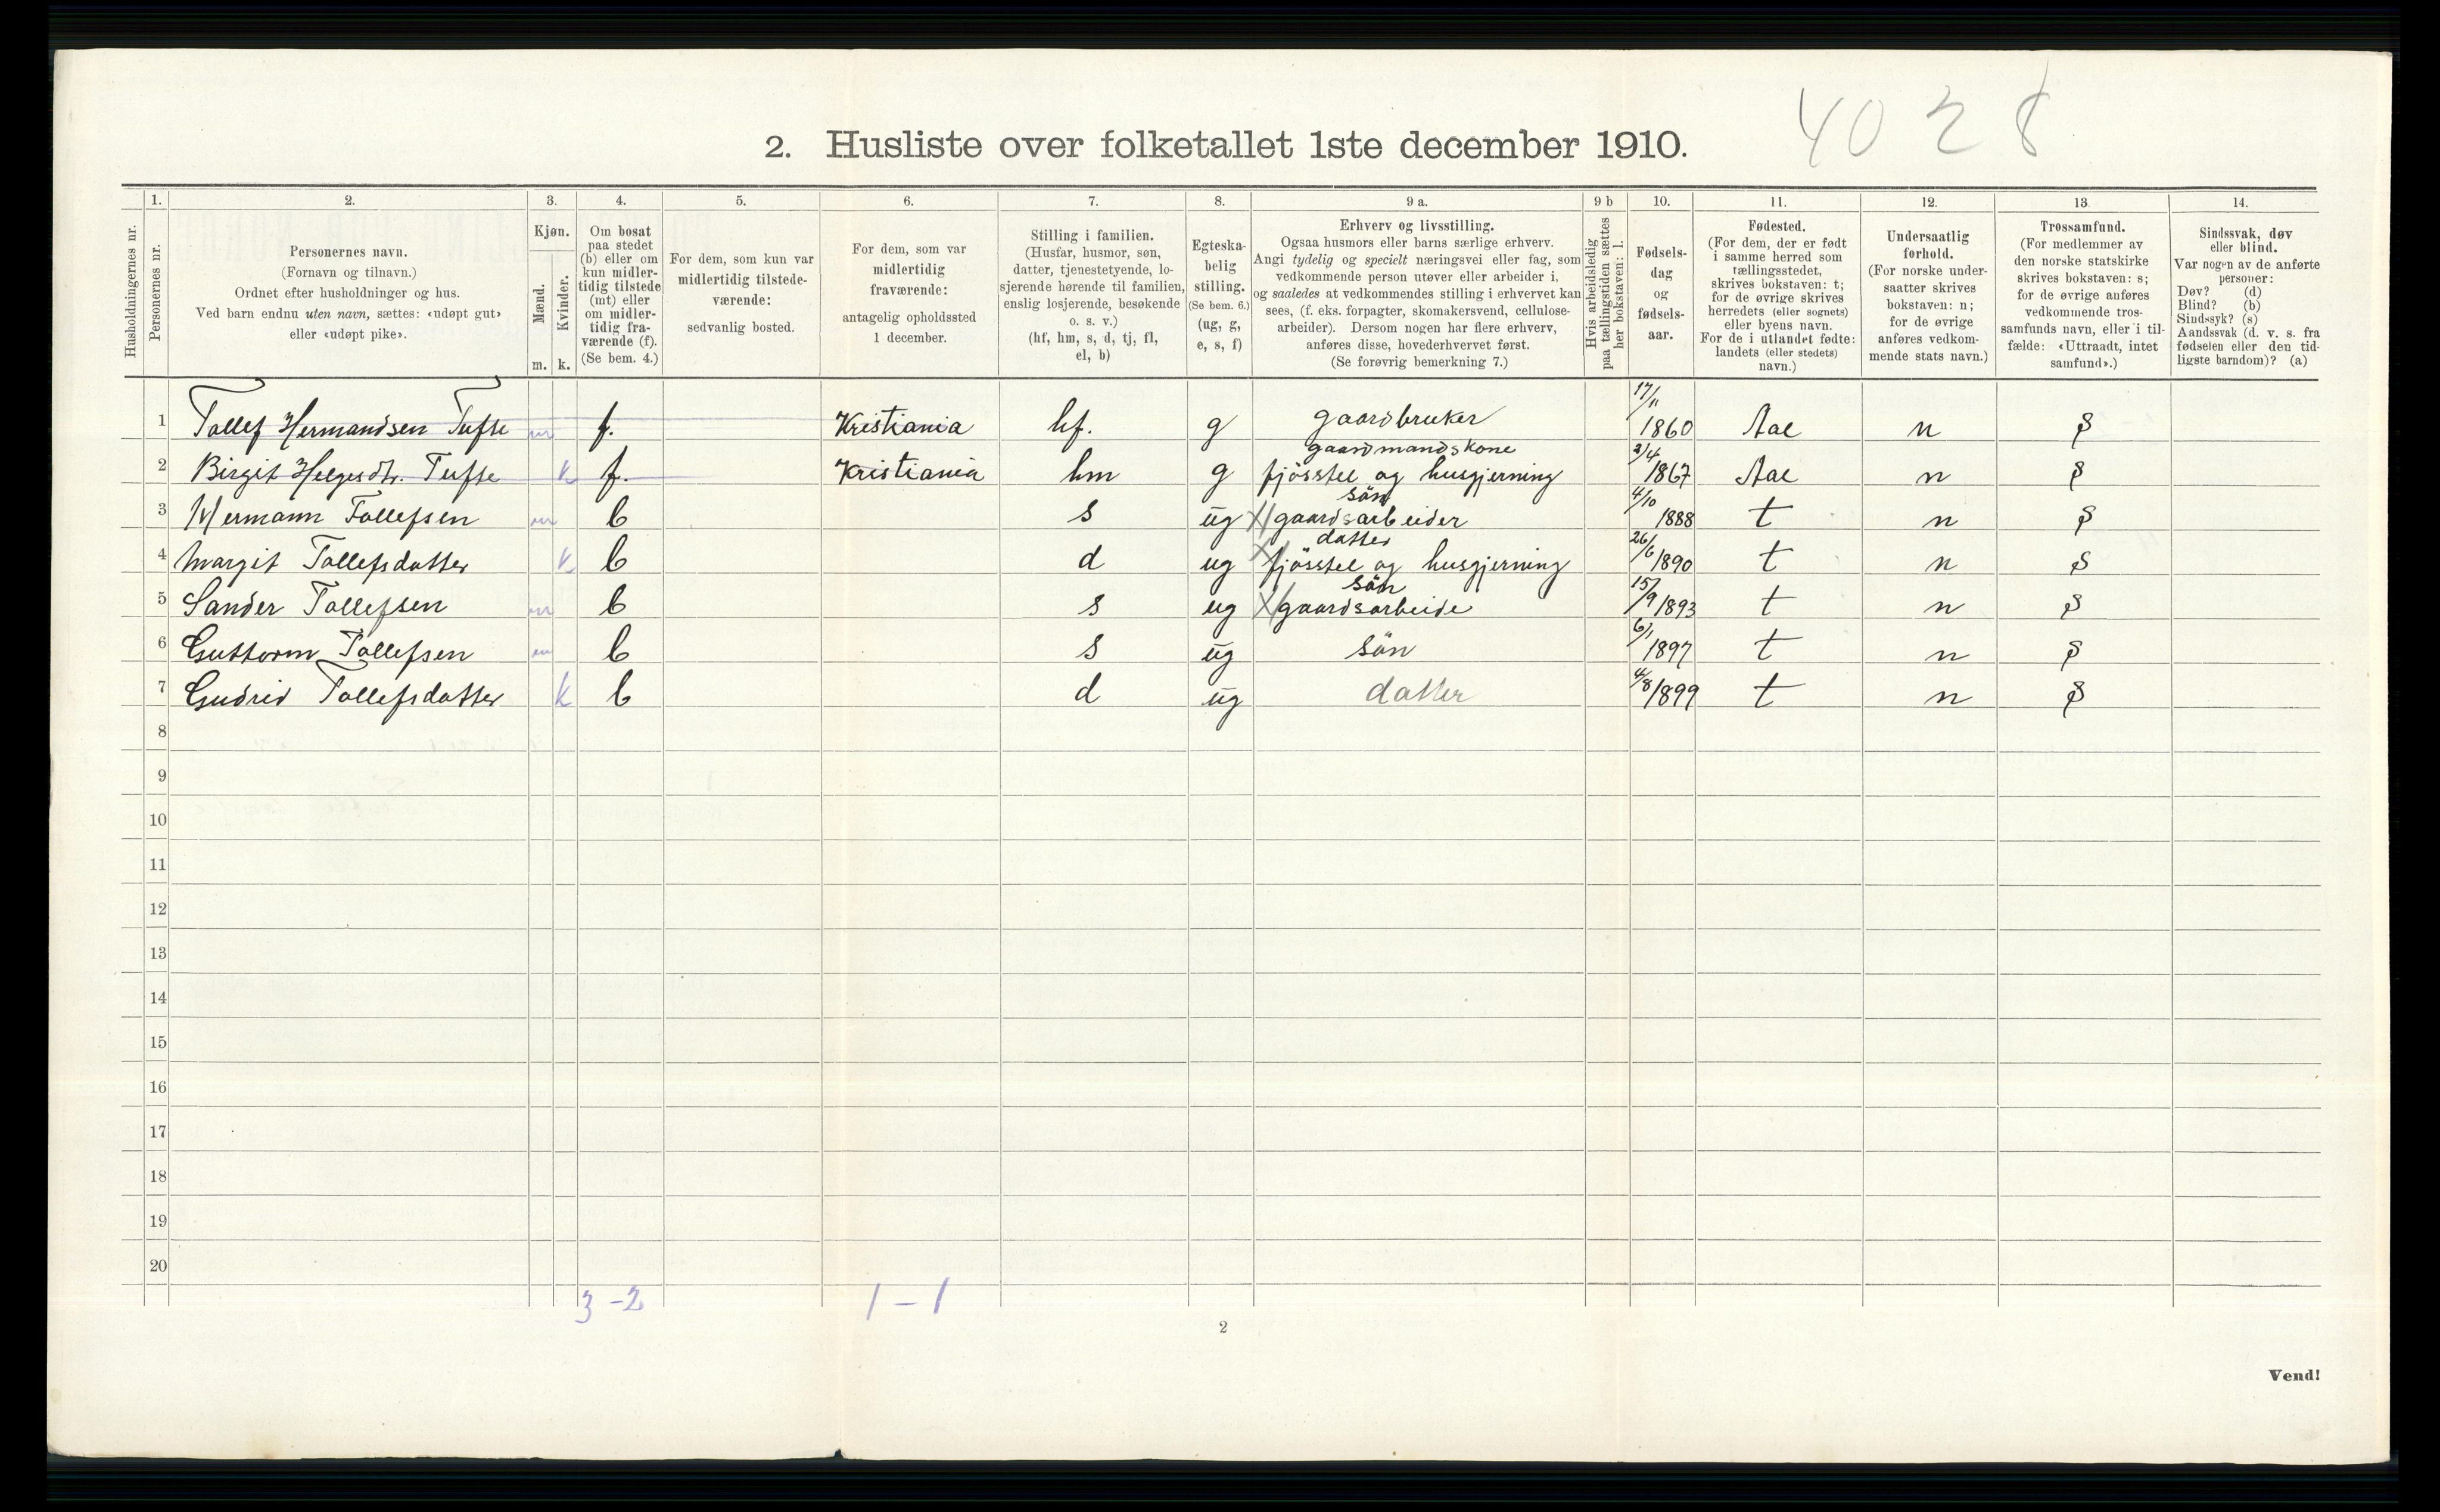 4028
2. Husliste over folketallet 1ste december 1910.
Husholdningernes nr.
1.
Personernes nr.
2.
Personernes navn.
(Fornavn og tilnavn.)
Ordnet efter husholdninger og hus.
Ved barn endnu uten navn, sættes: «udøpt gut»
eller «udøpt pike».
3.
Kjøn.
Mænd.
Kvinder.
m. k.
4.
Om bosat
paa stedet
(b) eller om
kun midler-
tidig tilstede
(mt) eller
om midler-
tidig fra-
værende (f).
(Se bem. 4.)
5.
For dem, som kun var
midlertidig tilstede-
værende:
sedvanlig bosted.
6.
For dem, som var
midlertidig
fraværende:
antagelig opholdssted
1 december.
7.
Stilling i familien.
(Husfar, husmor, søn,
datter, tjenestetyende, lo-
sjerende hørende til familien,
enslig losjerende, besøkende
o. s. v.)
(hf, hm, s, d, tj, fl,
el, b)
8.
Egteska-
belig
stilling.
(Se bem. 6.)
(ug, g,
e, s, f)
9 a.
Erhverv og livsstilling.
Ogsaa husmors eller barns særlige erhverv.
Angi tydelig og specielt næringsvei eller fag, som
vedkommende person utøver eller arbeider i,
og saaledes at vedkommendes stilling i erhvervet kan
sees, (f. eks. forpagter, skomakersvend, cellulose-
arbeider). Dersom nogen har flere erhverv,
anføres disse, hovederhvervet først.
(Se forøvrig bemerkning 7.)
9 b
Hvis arbeidsledig
paa tællingstiden sættes
her bokstaven: l.
10.
Fødsels-
dag
og
fødsels-
aar.
11.
Fødested.
(For dem, der er født
i samme herred som
tællingsstedet,
skrives bokstaven: t;
for de øvrige skrives
herredets (eller sognets)
eller byens navn.
For de i utlandet fødte:
landets (eller stedets)
navn.)
12.
Undersaatlig
forhold.
(For norske under-
saatter skrives
bokstaven: n;
for de øvrige
anføres vedkom-
mende stats navn.)
13.
Trossamfund.
(For medlemmer av
den norske statskirke
skrives bokstaven: s;
for de øvrige anføres
vedkommende tros-
samfunds navn, eller i til-
fælde: «Uttraadt, intet
samfund».)
14.
Sindssvak, døv
eller blind.
Var nogen av de anførte
personer:
Døv? (d)
Blind? (b)
Sindssyk? (s)
Aandssvak (d. v. s. fra
fødselen eller den tid-
ligste barndom)? (a)
1 Tollef Hermandsen Tufte m f. Kristiania hf. g gaardbruker 17/11 1860 Aal n S
2 Birgit Helgesdtr. Tufte k f. Kristiania hm g gaardmandskone fjösstel og husgjerning 2/4 1867 Aal n S
3 Hermann Tollefsen m b s ug X sön gaardsarbeider 4/10 1888 t n S
4 Margit Tollefsdatter k b d ug X datter fjösstel og husgjerning 26/6 1890 t n S
5 Sander Tollefsen m b s ug X sön gaardsarbeide 15/9 1893 t n S
6 Guttorm Tollefsen m b s ug sön 6/1 1897 t n S
7 Gudrid Tollefsdatter k b d ug datter 4/8 1899 t n S
8
9
10
11
12
13
14
15
16
17
18
19
20
3 - 2 1 - 1
2
Vend!